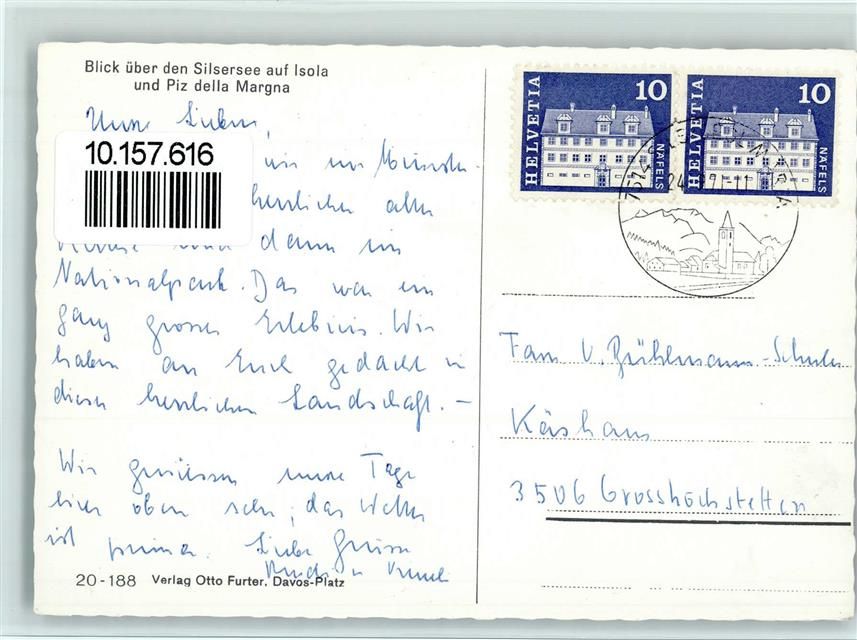 Blick über den Silsersee auf Isola
und Piz della Margna
Unsere Lieben,
10.157.616
wir im Münster-
herrlichen alten
und dann im
Nationalpark. Das war ein
ganz grosses Erlebnis. Wir
haben an Euch gedacht in
dieser herrlichen Landschaft. –
Wir geniessen unsere Tage
hier oben sehr; das Wetter
ist prima. Liebe Grüsse
20-188 Verlag Otto Furter, Davos-Platz
HELVETIA 10 NÄFELS
HELVETIA 10 NÄFELS
Fam. U. Bühlmann-Schuler
Käshaus
3506 Grosshöchstetten